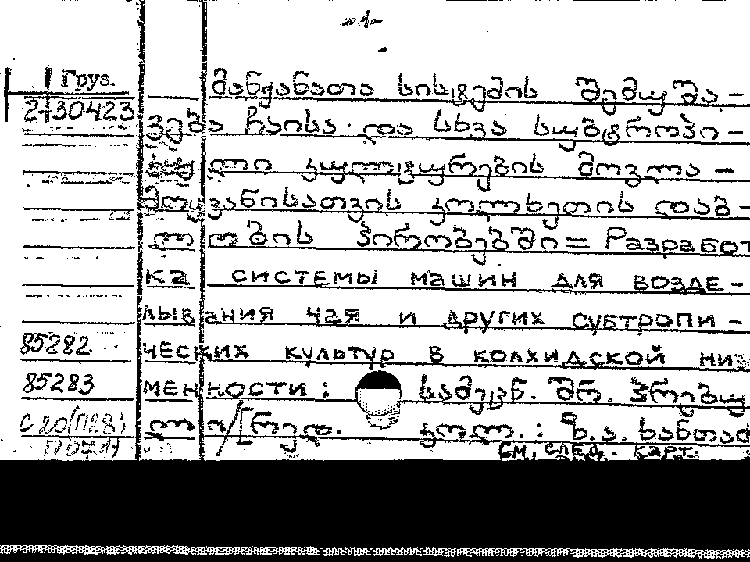 -1-
Груз.
2-30423
მანქანათა სისტემის შემუშა-
ვება ჩაისა და სხვა სუბტროპი-
ული კულტურების მოვლა-
მოყვანისათვის კოლხეთის დაბ-
ლობის პირობებში = Разработ
ка системы машин для возде-
лывания чая и других субтропи-
85282 ческих культур в колхидской низ
85283 менности: სამეცნ. შრ. კრებუ
ლი / [რედ. კოლ.: შ.ა. ხანთად
см. след. карт.